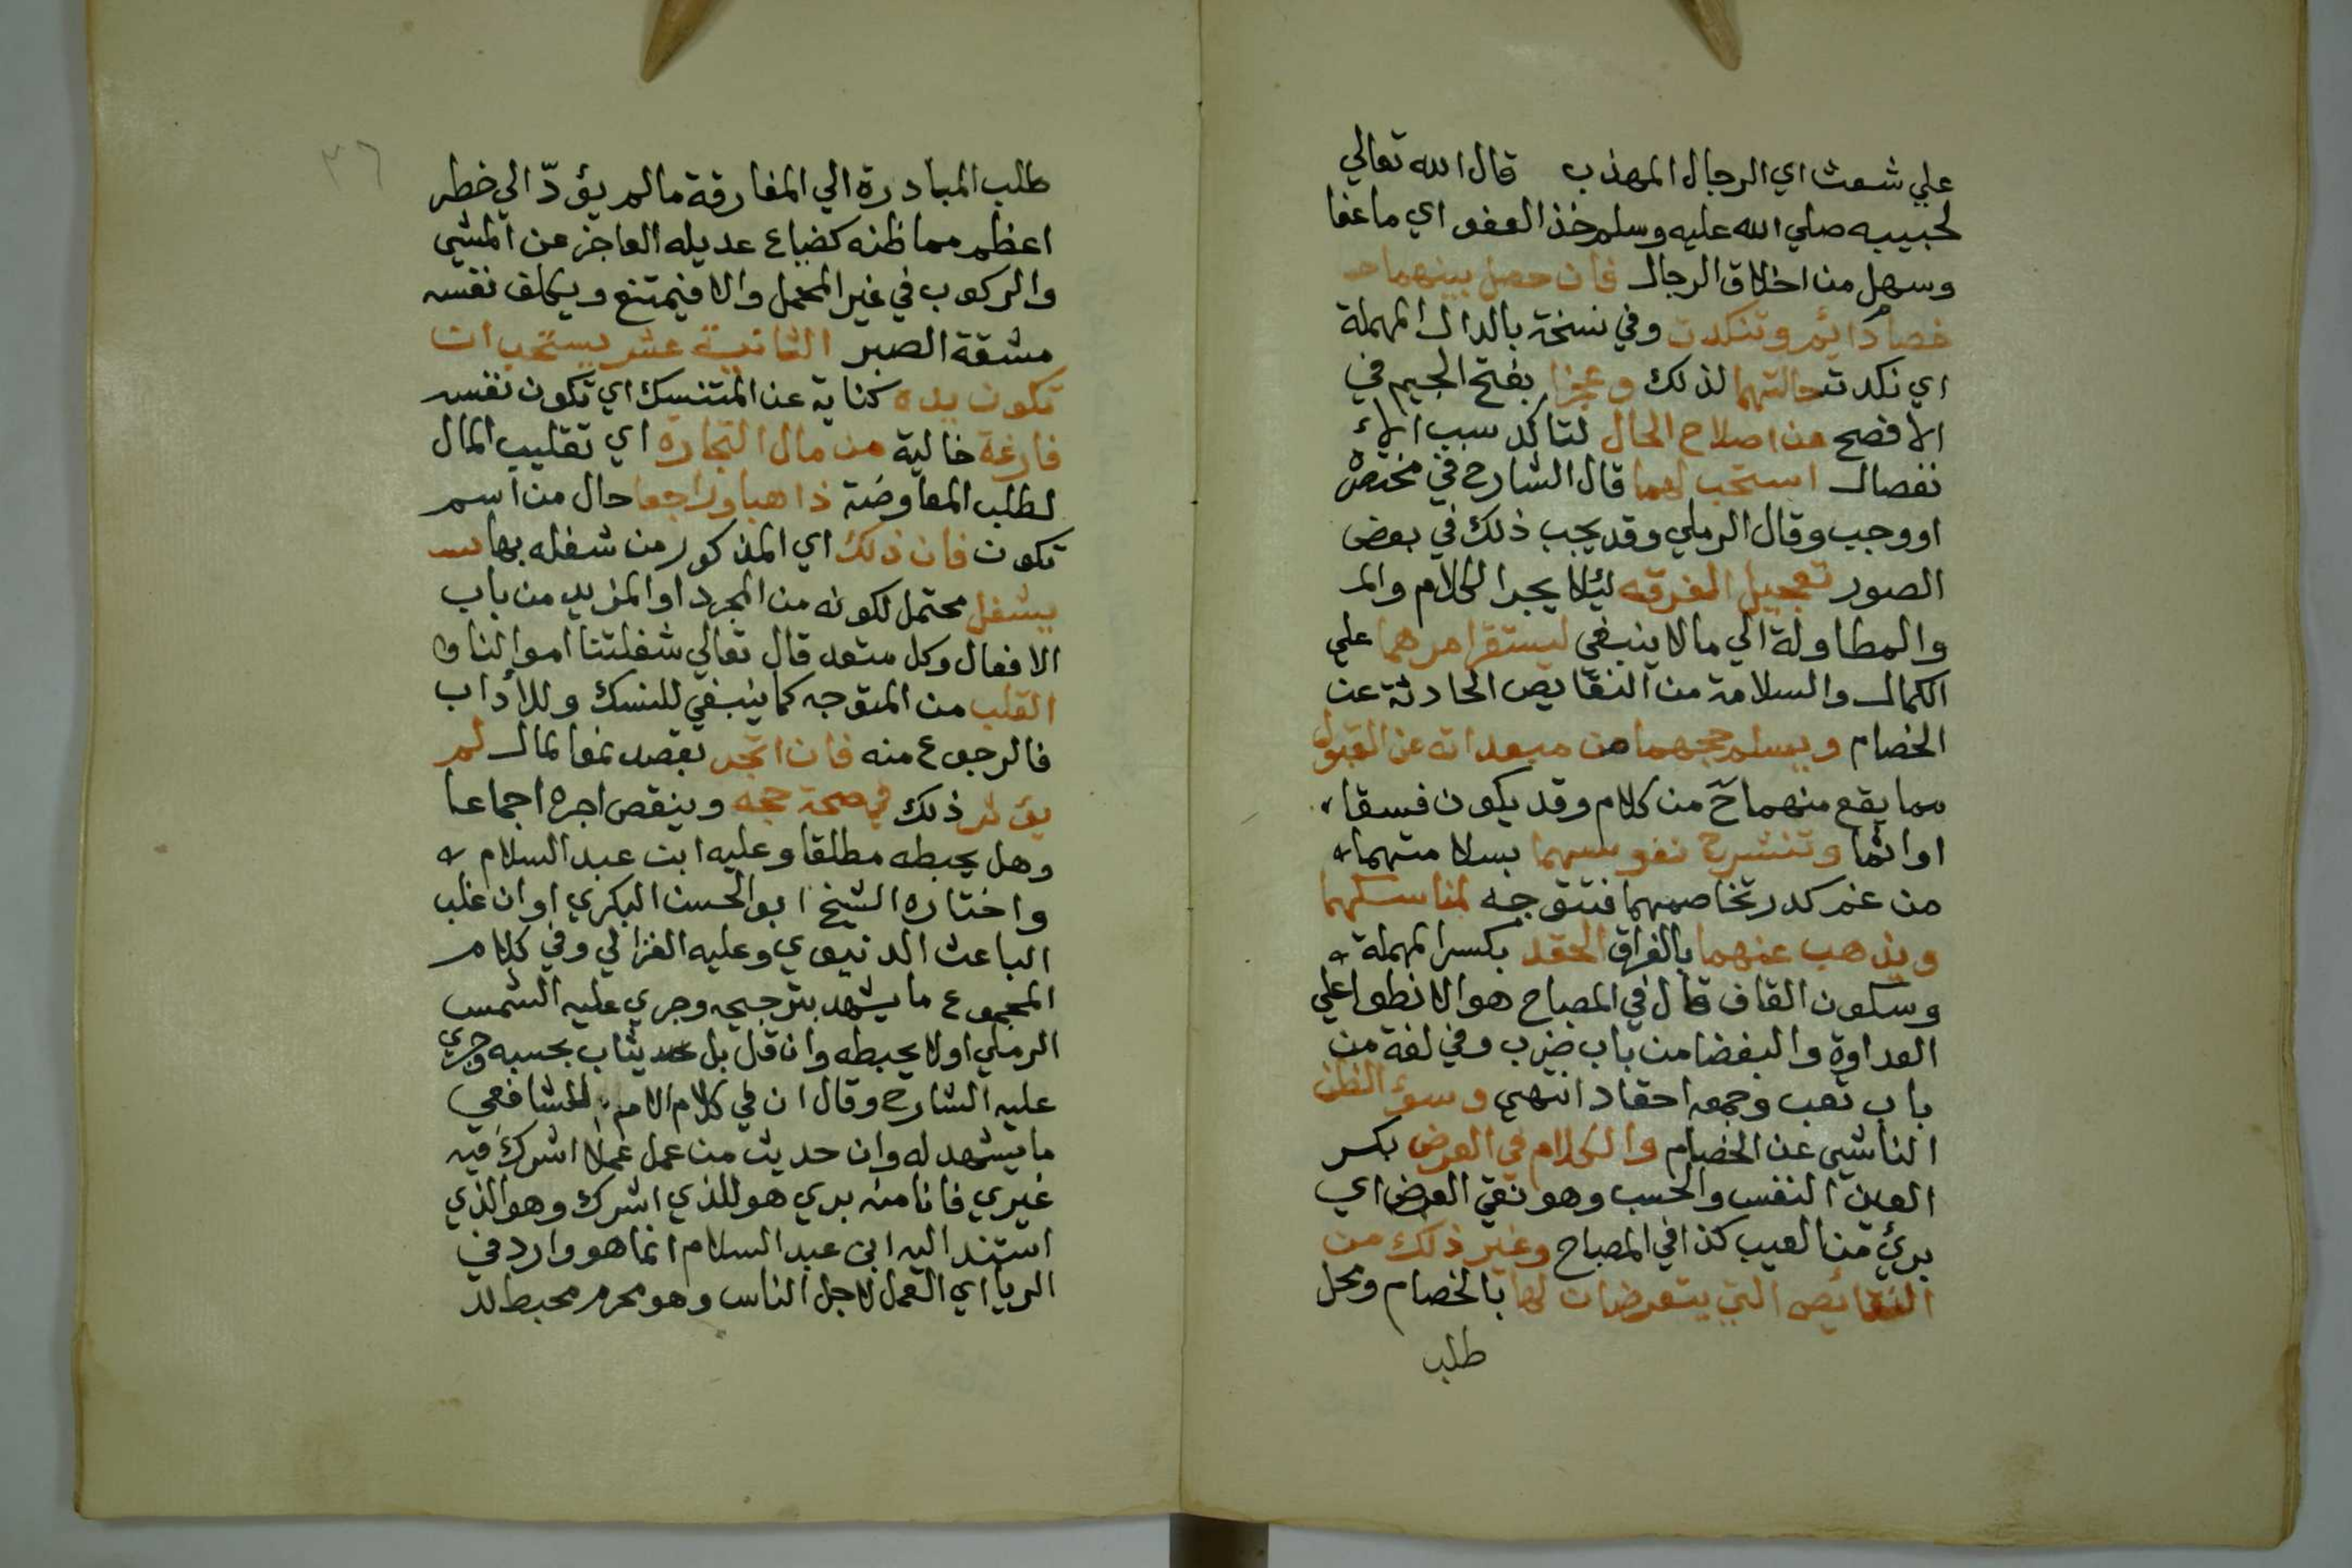 علي شعث اي الرجال المهذب قال الله تعالي
لحبيبه صلي الله عليه وسلم خذ العفو اي ما عفا
وسهل من اخلاق الرجال فان حصل بينهما حـ
خصام دائم وتنكدت وفي نسخة بالدال المهملة
اي نكدت حالتهما لذلك وعجزا بفتح الجيم في
الافصح من اصلاح الحال لتاكد سبب الاء
نفصال استحب لهما قال الشارح في مختصره
او وجب وقال الرملي وقد يجب ذلك في بعض
الصور تعجيل المفرقه ليئلا يجرا الكلام والمـ
والمطاولة الي ما لا ينبغي ليستقر امرهما علي
الكمال والسلامة من النقايص الحادثة عن
الخصام ويسلم حجهما من مبعداته عن القبول
مما يقع منهما ح من كلام وقد يكون فسقا
او اثما وتنشرح نفوسهما بسلامتهما
من غم كدر تخاصمهما فتتوجه لمناسكهما
ويذهب عنهما بالفراق الحقد بكسر المهملة
وسكون القاف قال في المصباح هو الانطوا علي
العداوة والبغضا من باب ضرب وفي لغة من
باب تعب وجمعه احقاد انتهي وسوء الظن
الناشي عن الخصام والكلام في العرض بكسر
العين النفس والحسب وهو نقي العرض اي
بريء من العيب كذا في المصباح وغير ذلك من
النقائص التي يتعرضان لها بالخصام ومحل
طلب
٣٦
طلب المبادرة الي المفارقة ما لم يؤدّ الي خطر
اعظم مما ظنه كضياع عديله العاجز عن المشي
والركوب في غير المحمل والا فيمتنع ويكلف نفسه
مشقة الصبر الثانية عشر يستحب ان
تكون يده كناية عن المتنسك اي تكون نفسه
فارغة خالية من مال التجارة اي تقليب المال
لطلب المعاوضة ذاهبا وراجعا حال من اسم
تكون فان ذلك اي المذكور من شغله بها
يشغل محتمل لكونه من المجرد او المزيد من باب
الافعال وكل متعد قال تعالي شغلتنا اموالنا
القلب من المتوجه كما ينبغي للنسك وللاداب
فالرجوع منه فان اتجر بقصد نموا لمال لم
يؤثر ذلك في صحة حجه وينقص اجره اجماعا
وهل يحبطه مطلقا وعليه ابن عبد السلام
واختاره الشيخ ابو الحسن البكري او ان غلب
الباعث الدنيوي وعليه الغزالي وفي كلام
المجموع ما يشهد بترجيحه وجري عليه الشمس
الرملي او لا يحبطه وان قل بل يثاب بحسبه وجري
عليه الشارح وقال ان في كلام الام للشافعي
ما يشهد له وان حديث من عمل عملا اشرك فيه
غيري فانا منه بري هو للذي اشرك وهو الذي
استند اليه ابن عبد السلام انما هو وارد في
الريا اي العمل لاجل الناس وهو محرم محبط لد